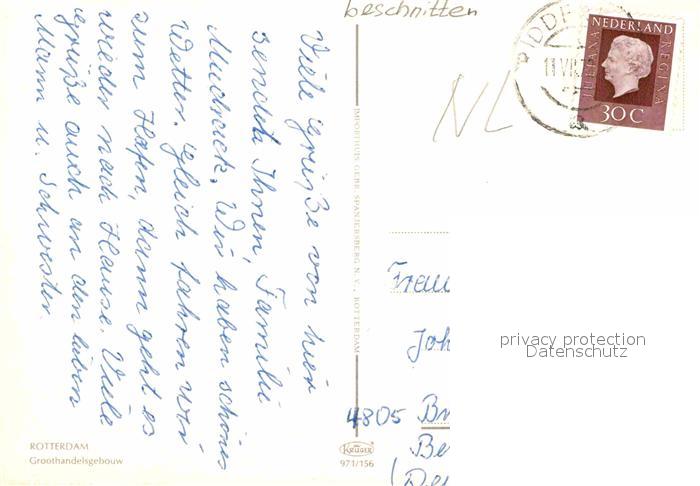 beschnitten
NL
NEDERLAND
JULIANA REGINA
30 C
Viele Grüße von hier
sendet Ihnen, Familie
Mudrack. Wir haben schönes
Wetter. Gleich fahren wir
zum Hafen, dann geht es
wieder nach Hause. Viele
Grüße auch an den lieben
Mann u. Schwester.
IMPORTHUIS GEBR. SPANJERSBERG N.V., ROTTERDAM
Frau
Joh
4805 Br
Be
(De
privacy protection
Datenschutz
ROTTERDAM
Groothandelsgebouw
KRÜGER
971/156